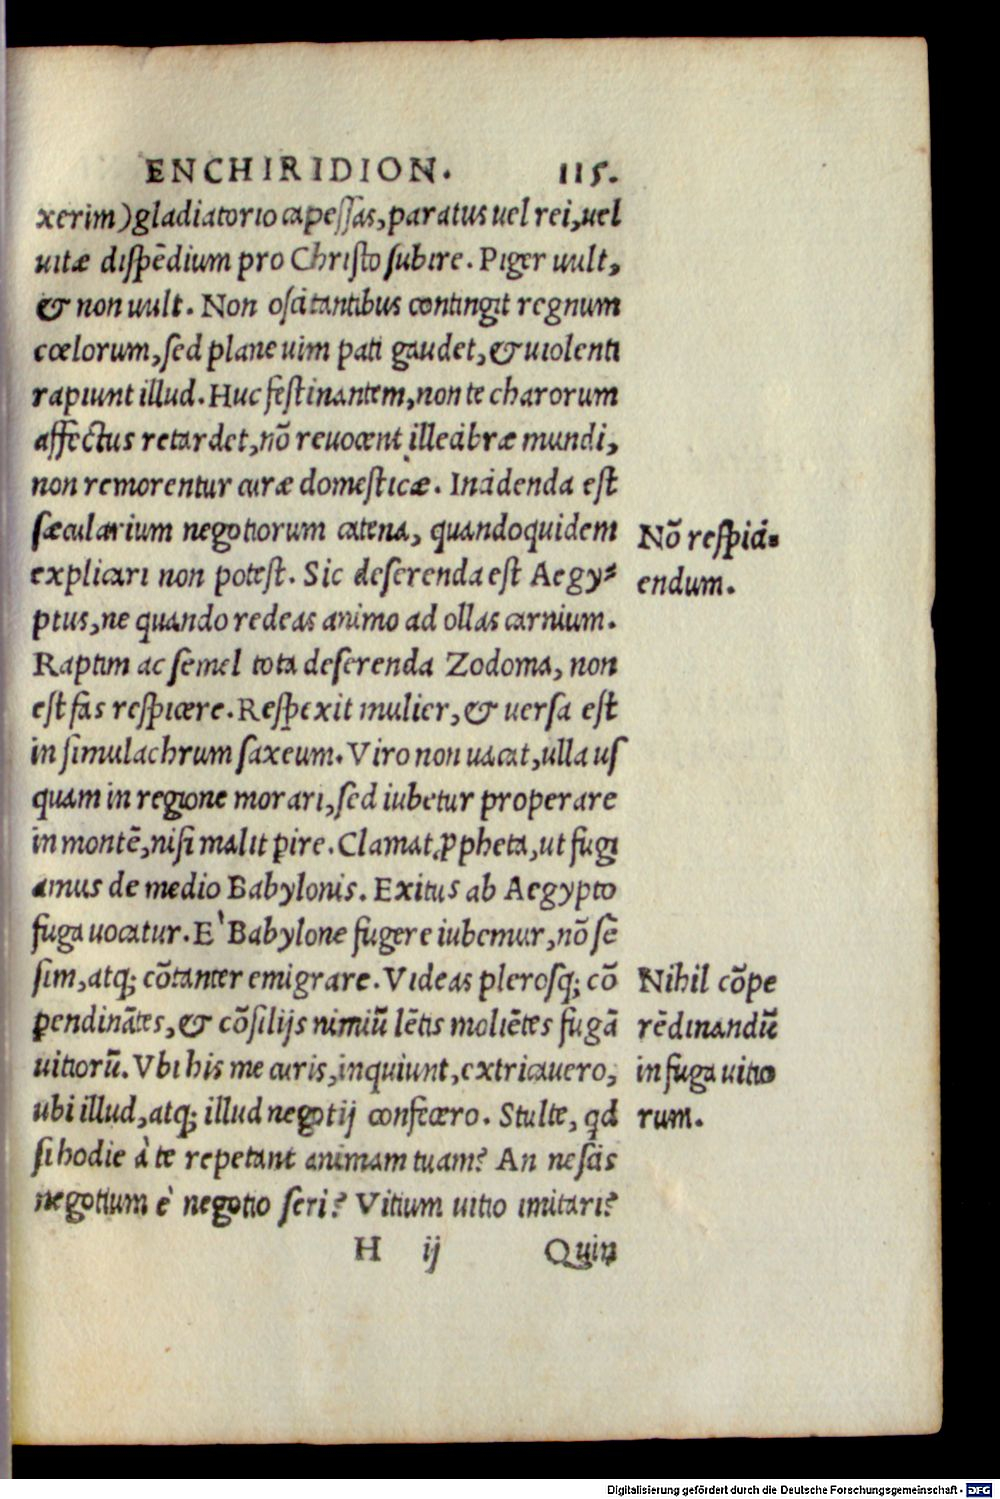 ENCHIRIDION. 115.
xerim) gladiatorio capessas, paratus uel rei, uel
uitæ dispēdium pro Christo subire. Piger uult,
& non uult. Non oscitantibus contingit regnum
cœlorum, sed plane uim pati gaudet, & uiolenti
rapiunt illud. Huc festinantem, non te charorum
affectus retardet, nō reuocent illecibræ mundi,
non remorentur curæ domesticæ. Incidenda est
sæcularium negotiorum catena, quandoquidem
explicari non potest. Sic deserenda est Aegy-
ptus, ne quando redeas animo ad ollas carnium.
Raptim ac semel tota deserenda Zodoma, non
est fas respicere. Respexit mulier, & uersa est
in simulachrum saxeum. Viro non uacat, ulla us
quam in regione morari, sed iubetur properare
in montē, nisi malit pire. Clamat ꝓpheta, ut fugi
amus de medio Babylonis. Exitus ab Aegypto
fuga uocatur. E` Babylone fugere iubemur, nō sē
sim, atq; cōtanter emigrare. Videas plerosq; cō
pendinātes, & cōsilijs nimiū lētis moliētes fugā
uitiorū. Vbi his me curis, inquiunt, extricauero,
ubi illud, atq; illud negotij confecero. Stulte, qd
si hodie à te repetant animam tuam? An nescis
negotium è negotio seri? Vitium uitio imitari?
H ij Quin
Nō respici-
endum.
Nihil cōpe
rēdinandū
in fuga uitio
rum.
Digitalisierung gefördert durch die Deutsche Forschungsgemeinschaft - DFG